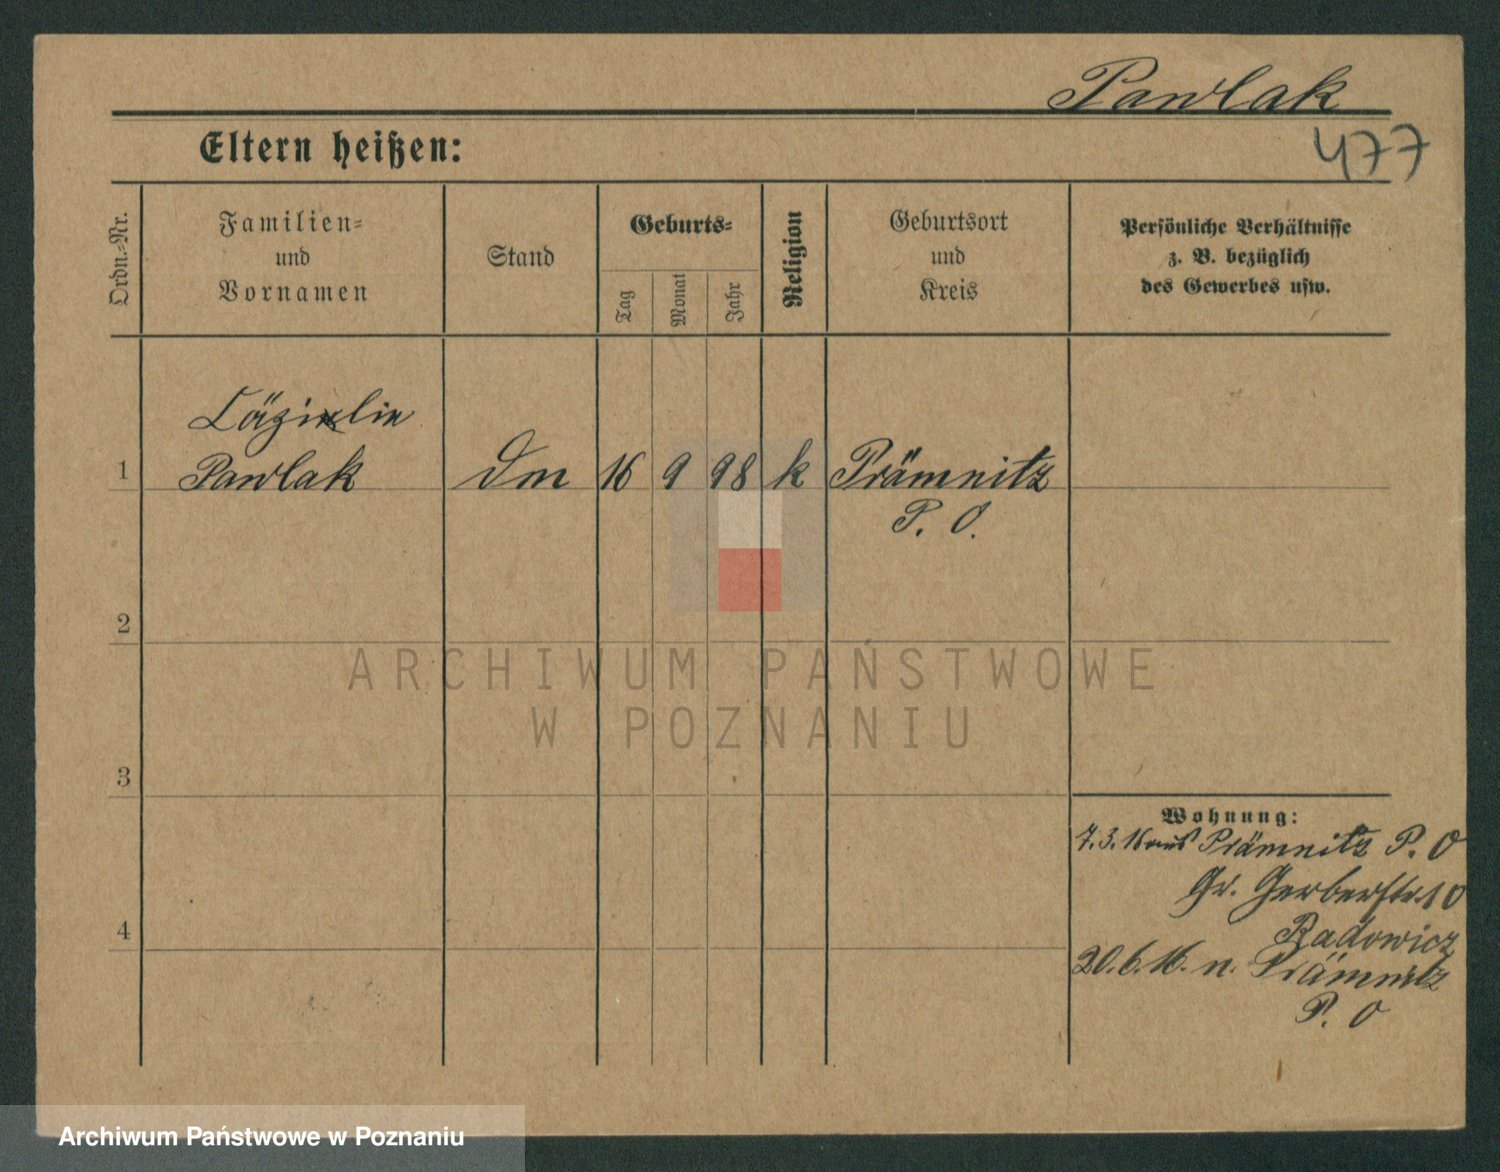 Pawlak
477
Eltern heißen:
Ordn.-Nr.
Familien-
und
Vornamen
Stand
Geburts-
Tag
Monat
Jahr
Religion
Geburtsort
und
Kreis
Persönliche Verhältnisse
z. B. bezüglich
des Gewerbes usw.
1
Pawlak
16 9 98 k Prämnitz
P. O.
2
3
4
Wohnung:
7.3.16 aus Prämnitz P. O
Gr. Gerberstr. 10
Radowicz
20.6.16. n. Prämnitz
P. O
ARCHIWUM PAŃSTWOWE
W POZNANIU
Archiwum Państwowe w Poznaniu